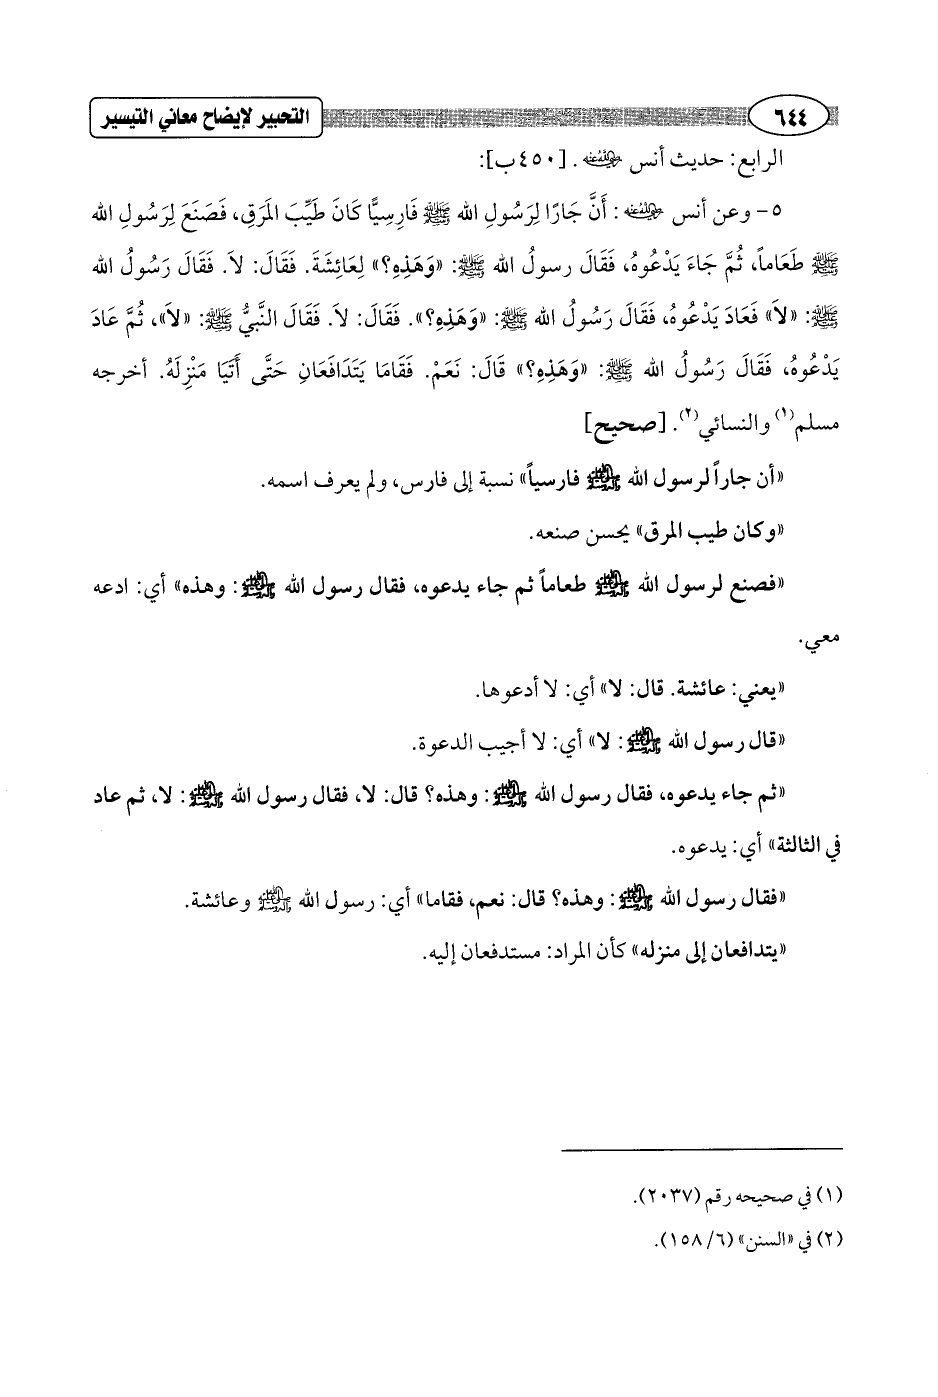 ٦٤٤ التحبير لإيضاح معاني التيسير
الرابع: حديث أنس رضي الله عنه. [٤٥٠ب]:
٥- وعن أنس رضي الله عنه: أَنَّ جَارًا لِرَسُولِ الله ﷺ فَارِسِيًّا كَانَ طَيِّبَ المَرَقِ، فَصَنَعَ لِرَسُولِ الله
ﷺ طَعَاماً، ثُمَّ جَاءَ يَدْعُوهُ، فَقَالَ رسولُ الله ﷺ: «وَهَذِهِ؟» لِعَائِشَةَ. فقَالَ: لاَ. فقَالَ رَسُولُ الله
ﷺ: «لاَ» فَعَادَ يَدْعُوهُ، فَقَالَ رَسُولُ الله ﷺ: «وَهَذِهِ؟». فَقَالَ: لاَ. فَقَالَ النَّبيُّ ﷺ: «لاَ»، ثُمَّ عَادَ
يَدْعُوهُ، فَقَالَ رَسُولُ الله ﷺ: «وَهَذِهِ؟» قَالَ: نَعَمْ. فَقَامَا يَتَدَافَعَانِ حَتَّى أَتَيَا مَنْزِلَهُ. أخرجه
مسلم(١) والنسائي(٢). [صحيح]
«أن جاراً لرسول الله ﷺ فارسياً» نسبة إلى فارس، ولم يعرف اسمه.
«وكان طيب المرق» يحسن صنعه.
«فصنع لرسول الله ﷺ طعاماً ثم جاء يدعوه، فقال رسول الله ﷺ: وهذه» أي: ادعه
معي.
«يعني: عائشة. قال: لا» أي: لا أدعوها.
«قال رسول الله ﷺ: لا» أي: لا أجيب الدعوة.
«ثم جاء يدعوه، فقال رسول الله ﷺ: وهذه؟ قال: لا، فقال رسول الله ﷺ: لا، ثم عاد
في الثالثة» أي: يدعوه.
«فقال رسول الله ﷺ: وهذه؟ قال: نعم، فقاما» أي: رسول الله ﷺ وعائشة.
«يتدافعان إلى منزله» كأن المراد: مستدفعان إليه.
(١) في صحيحه رقم (٢٠٣٧).
(٢) في «السنن» (٦/ ١٥٨).